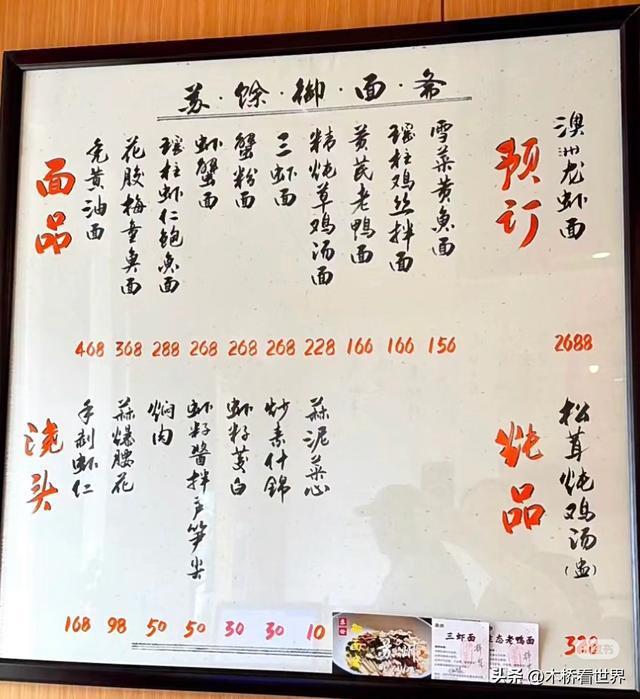 苏·馀·御·面·斋
面品
秃黄油面
花胶梅童臭面
瑶柱虾仁鲍鱼面
虾蟹面
蟹粉面
三虾面
精炖草鸡汤面
黄芪老鸭面
瑶柱鸡丝拌面
雪菜黄鱼面
468 368 288 268 268 268 228 166 166 156
预订
澳洲龙虾面
2688
浇头
手剥虾仁
蒜爆腰花
焖肉
虾籽酱拌芦笋尖
虾籽茭白
炒素什锦
蒜泥菜心
168 98 50 50 30 30 10
炖品
松茸炖鸡汤(盅)
三虾面
生态老鸭面
头条 @木桥看世界